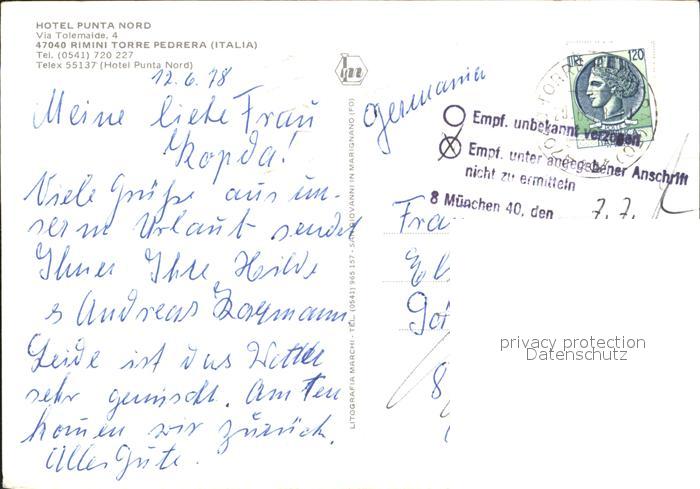 HOTEL PUNTA NORD
Via Tolemaide, 4
47040 RIMINI TORRE PEDRERA (ITALIA)
Tel. (0541) 720 227
Telex 55137 (Hotel Punta Nord)
12.6.78
Meine liebe Frau
Kopda!
Viele Grüße aus un-
serm Urlaub sendet
Ihnen Ihre Hilde
s Andreas
Leide ist das Wetter
sehr gemischt. Am
komen wir zurück.
Alles Gute.
LITOGRAFIA MARCHI - TEL. (0541) 965 157 - SAN GIOVANNI IN MARIGNANO (FO)
Germania
LIRE 120
ITALIA
Empf. unbekannt verzogen
Empf. unter angegebener Anschrift
nicht zu ermitteln
8 München 40, den 7.7.
Fra
El
8
privacy protection
Datenschutz